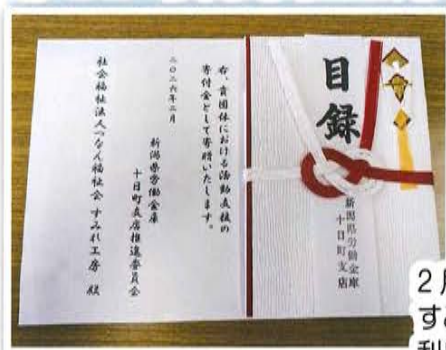 目録
新潟県労働金庫
十日町支店
右、貴団体における活動支援の
寄付金として寄贈いたします。
二〇二六年二月
新潟県労働金庫
十日町支店推進委員会
社会福祉法人つなん福祉会 すみれ工房 殿
2月
す
利